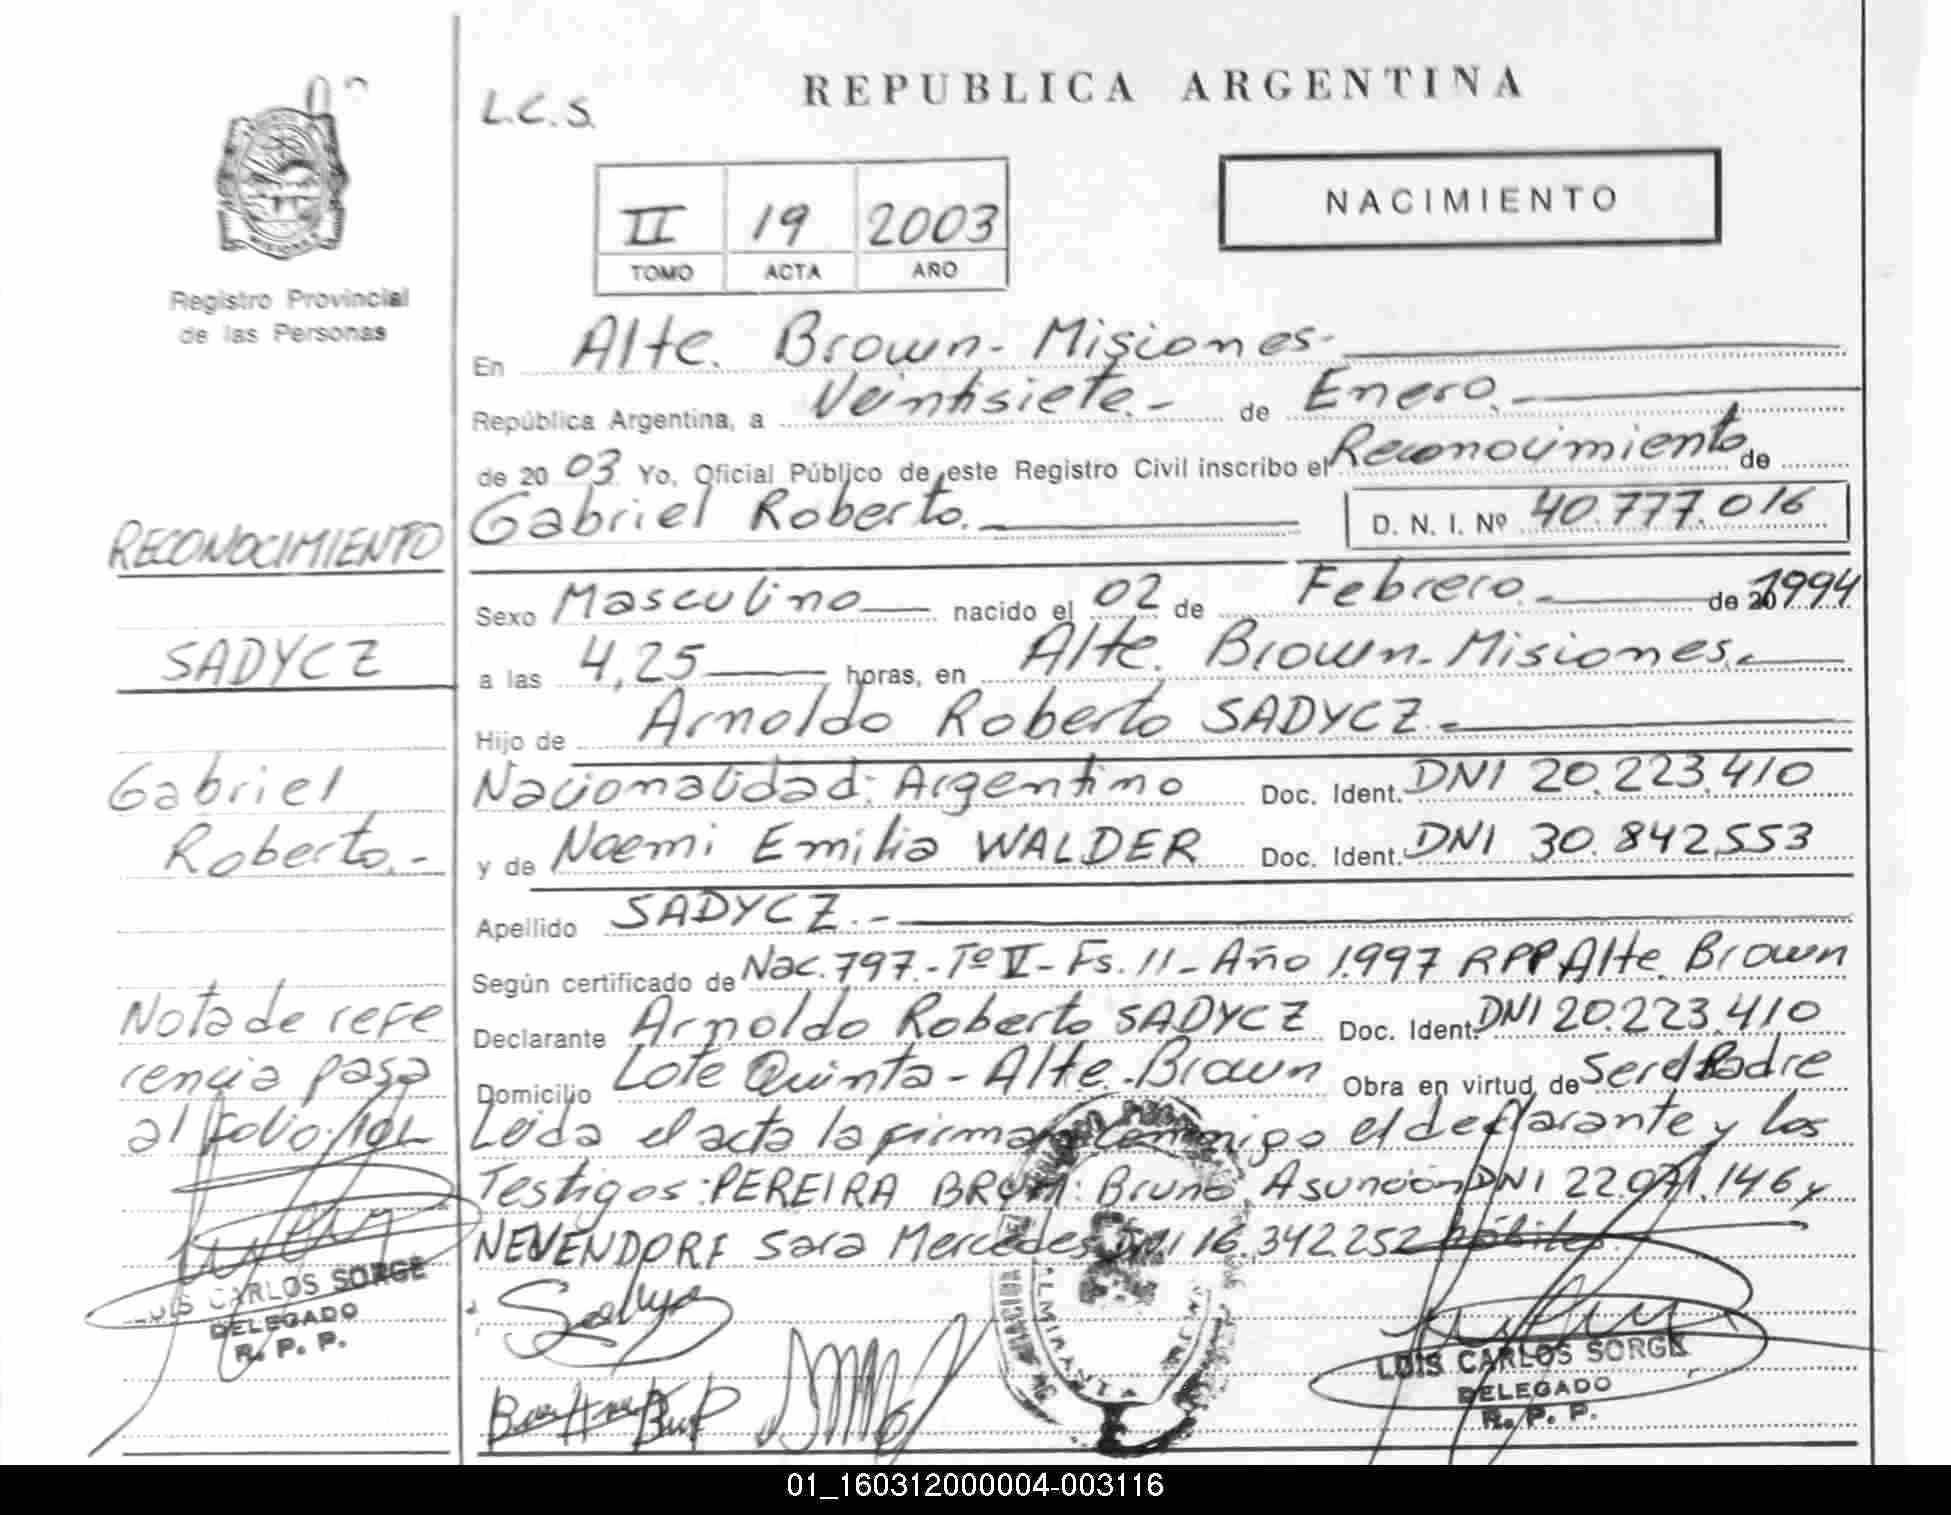 L.C.S.
REPUBLICA ARGENTINA
II 19 2003
TOMO ACTA AÑO
NACIMIENTO
MISIONES
Registro Provincial
de las Personas
RECONOCIMIENTO
SADYCZ
Gabriel
Roberto.-
Nota de refe
rencia pasa
al folio 101
LUIS CARLOS SORGE
DELEGADO
R. P. P.
En Alte. Brown - Misiones-
República Argentina, a Veintisiete.- de Enero.
de 2003 Yo, Oficial Público de este Registro Civil inscribo el Reconocimiento de
Gabriel Roberto. D. N. I. Nº 40.777.016
Sexo Masculino nacido el 02 de Febrero. de 20 1994
a las 4,25 horas, en Alte. Brown - Misiones.
Hijo de Arnoldo Roberto SADYCZ.-
Nacionalidad: Argentino Doc. Ident. DNI 20.223.410
y de Noemi Emilia WALDER Doc. Ident. DNI 30.842.553
Apellido SADYCZ.-
Según certificado de Nac. 797.- Tº V - Fs. 11 - Año 1.997 RPP Alte. Brown
Declarante Arnoldo Roberto SADYCZ Doc. Ident. DNI 20.223.410
Domicilio Lote Quinta - Alte. Brown Obra en virtud de Ser el Padre
Leída el acta la firman conmigo el declarante y los
Testigos: PEREIRA BRUM: Bruno Asunción DNI 22.071.146 y
NEVENDORF Sara Mercedes DNI 16.342.252 hábiles.
ALMIRANTE
LUIS CARLOS SORGE
DELEGADO
R. P. P.
01_160312000004-003116